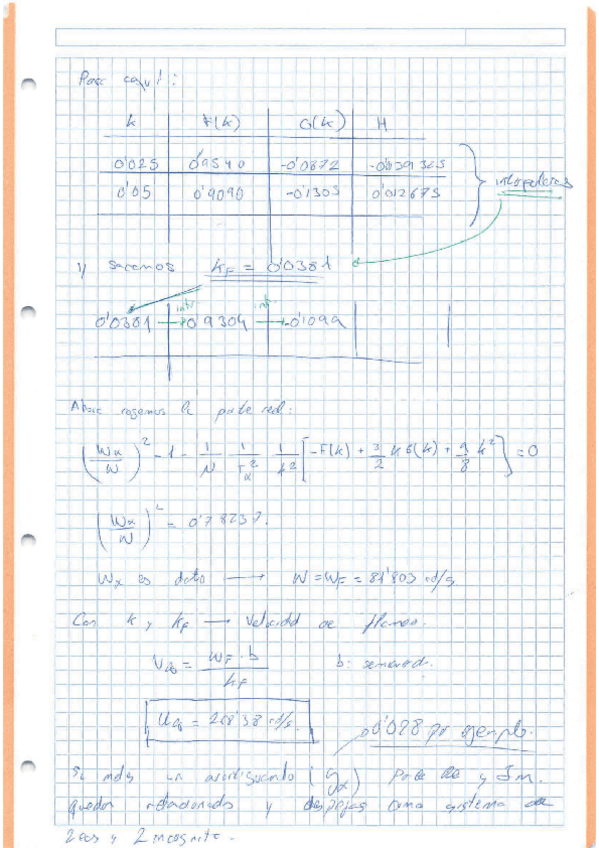 Para aquí:
k F(k) G(k) H
0'025 0'9540 -0'0872 -0'039365
0'05 0'9090 -0'1303 0'012675
interpolamos
y sacamos k_F = 0'0381
intr. intr.
0'0381 → 0'9304 → -0'1099
Ahora cogemos la parte real:
(Wα/W)² - 1 - 1/N 1/rα² 1/k² [-F(k) + 3/2 k G(k) + 9/8 k²] = 0
(Wα/W)² = 0'78237.
Wα es dato → W = W_F = 81'803 rd/s
Con k y k_F → velocidad de flameo.
U∞ = W_F · b / k_F b: semicuerda.
U∞ = 268'38 rd/s.
0'028 por ejemplo.
Si metes un amortiguamiento (gα) parte Re y Im.
quedan relacionados y despejas como sistema de
2 ecs y 2 incognitas.